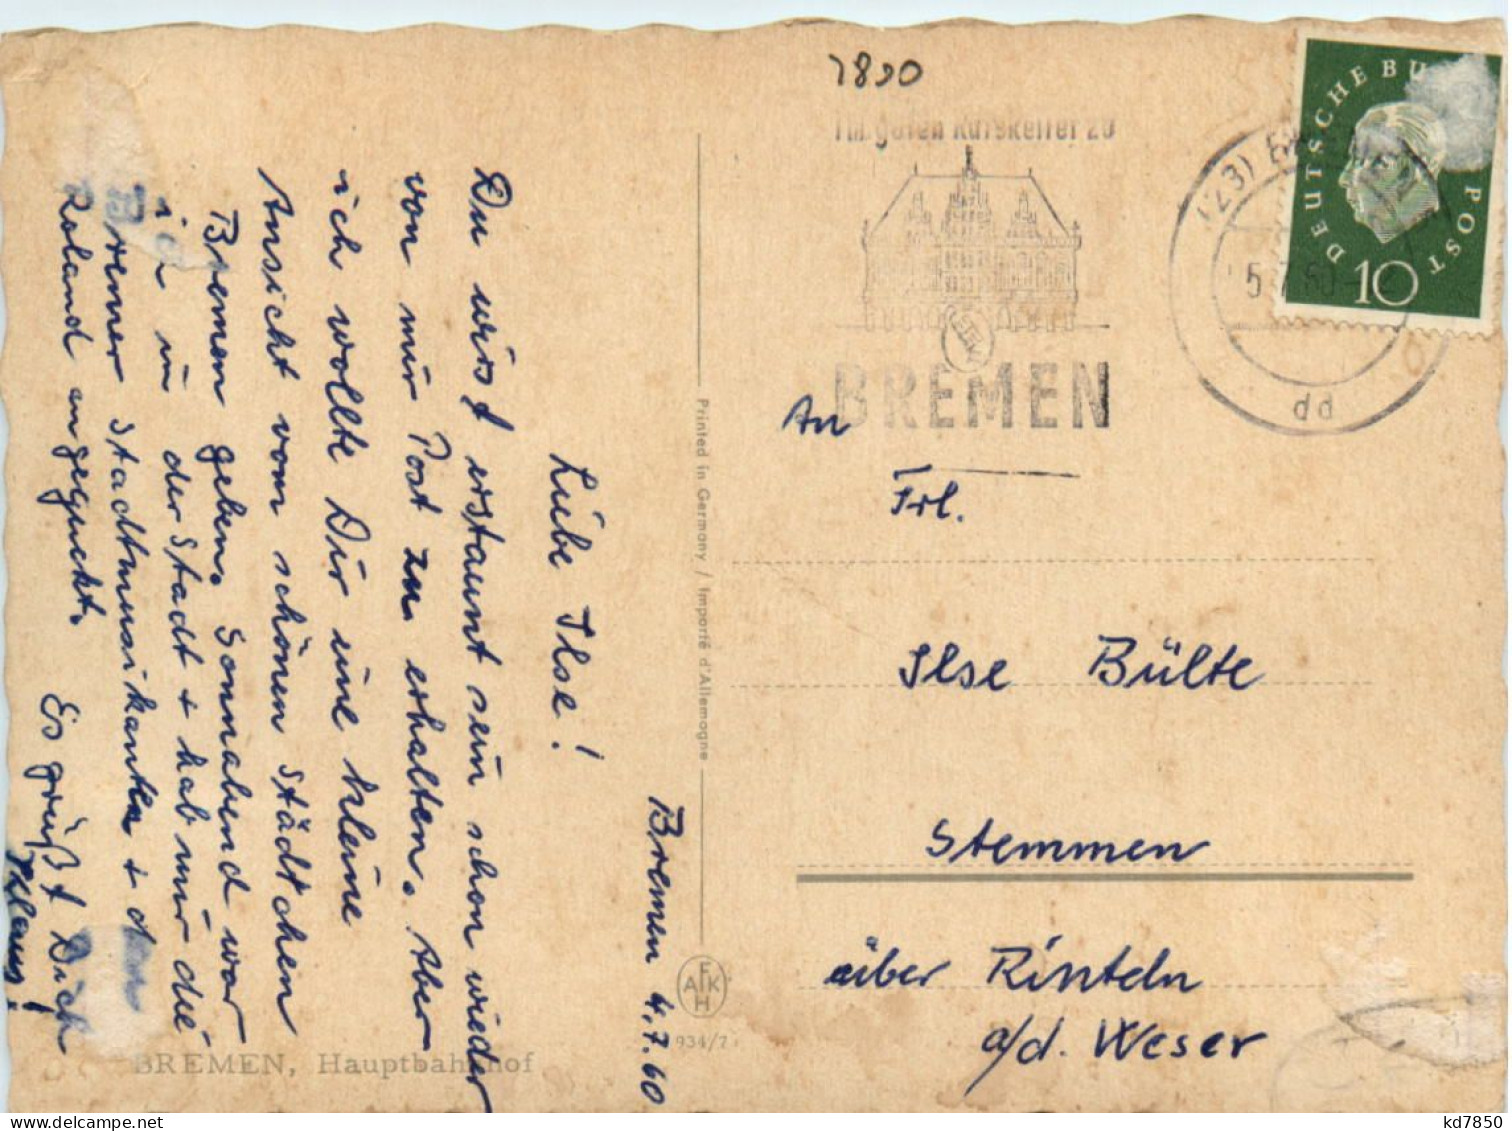 Bremen 4.7.60
Liebe Ilse!
Du wirst erstaunt sein schon wieder
von mir Post zu erhalten. Aber
ich wollte Dir eine kleine
Ansicht vom schönen Städtchen
Bremen geben. Sonnabend war
ich in der Stadt + hab mir die
Bremer Stadtmusikanten + den
Roland angeguckt.
Es grüßt Dich
Klaus!
BREMEN, Hauptbahnhof
Printed in Germany / Importé d'Allemagne
AFKH
934/7
7890
Im guten Ratskeller zu
BREMEN
(23) BREMEN
5.7.60
dd
DEUTSCHE BUNDESPOST
10
An
Frl.
Ilse Bülte
Stemmen
über Rinteln
a/d. Weser
kd7850